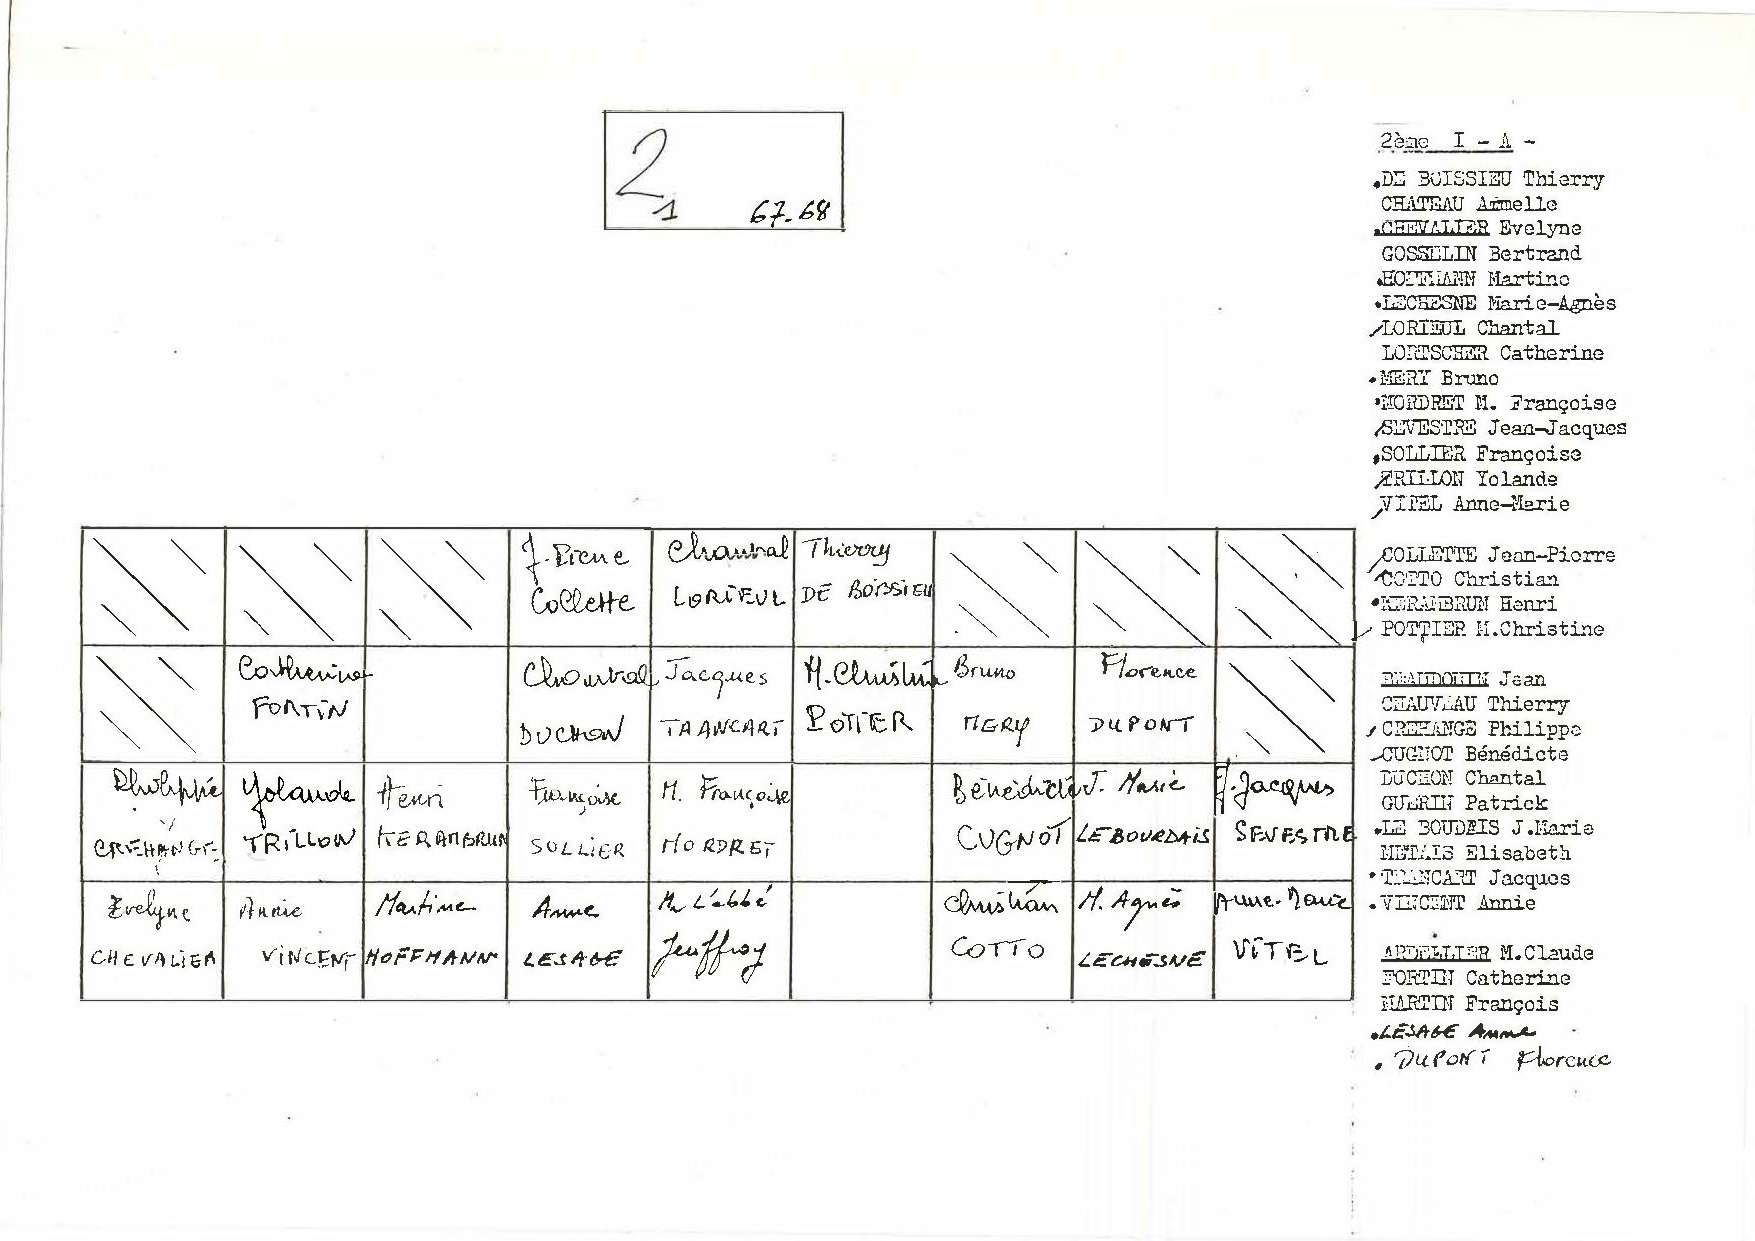 2
1 67-68
J. Pierre
Collette
Chantal
LORIEUL
Thierry
DE BOISSIEU
Catherine
FORTIN
Chantal
DUCHON
Jacques
TRANCART
M. Christine
POTIER
Bruno
MERY
Florence
DUPONT
Philippe
CREHANGE
Yolande
TRILLON
Henri
KERAMBRUN
Françoise
SOLLIER
M. Françoise
MORDRET
Bénédicte
CUGNOT
J. Marie
LEBOURDAIS
J. Jacques
SEVESTRE
Evelyne
CHEVALIER
Annie
VINCENT
Martine
HOFFMANN
Anne
LESAGE
M. L'abbé
Jeuffroy
Christian
COTTO
M. Agnès
LECHESNE
Anne-Marie
VITEL
2ème I - A -
DE BOISSIEU Thierry
CHATEAU Armelle
CHEVALIER Evelyne
GOSSELIN Bertrand
HOFFMANN Martine
LECHESNE Marie-Agnès
LORIEUL Chantal
LORTSCHER Catherine
MERY Bruno
MORDRET M. Françoise
SEVESTRE Jean-Jacques
SOLLIER Françoise
TRILLON Yolande
VITEL Anne-Marie
COLLETTE Jean-Pierre
COTTO Christian
KERAMBRUN Henri
POTTIER M.Christine
BEAUDOUIN Jean
CHAUVEAU Thierry
CREHANGE Philippe
CUGNOT Bénédicte
DUCHON Chantal
GUERIN Patrick
LE BOUDAIS J.Marie
METAIS Elisabeth
TRANCART Jacques
VINCENT Annie
ARDELLIER M.Claude
FORTIN Catherine
MARTIN François
LESAGE Anne
DUPONT Florence